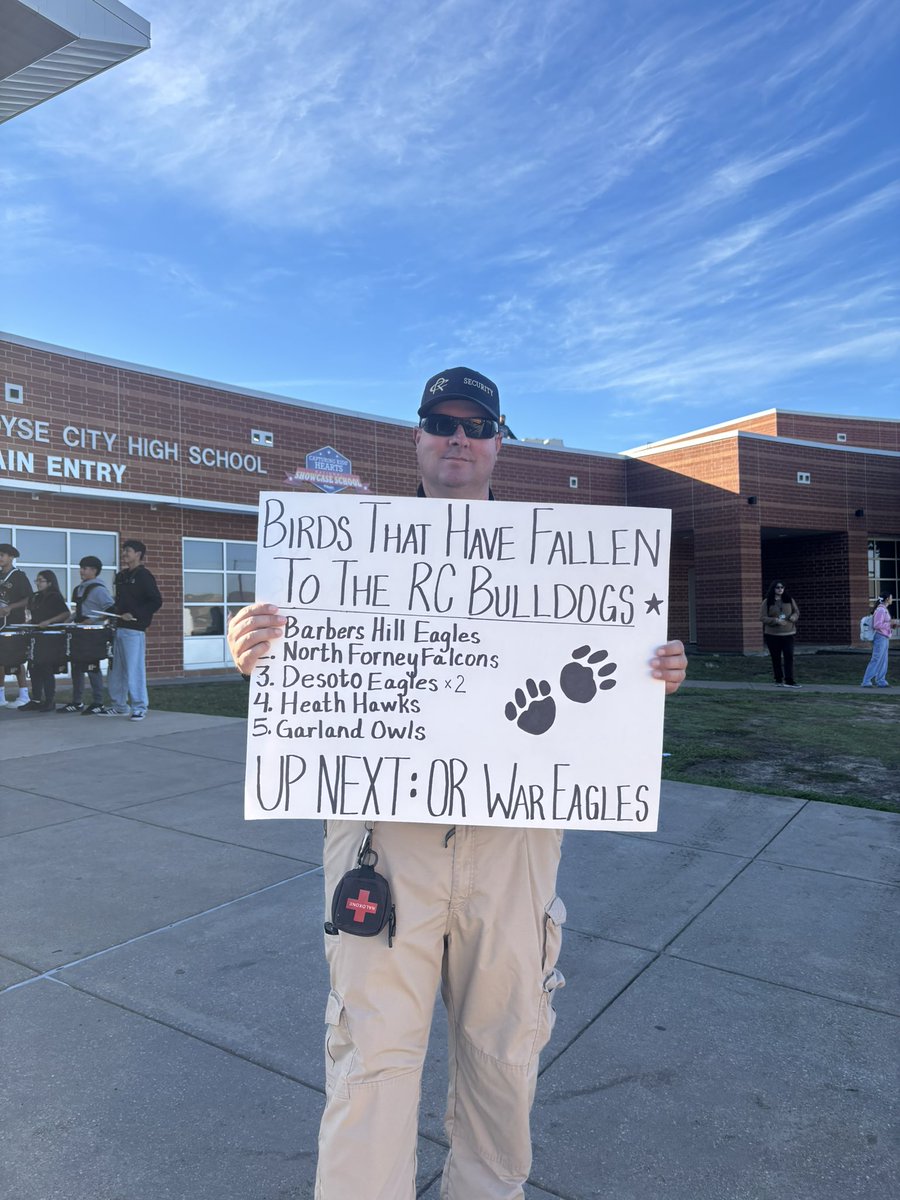 SECURITY
YSE CITY HIGH SCHOOL
AIN ENTRY
CAPTURING KIDS' HEARTS
SHOWCASE SCHOOL
BIRDS THAT HAVE FALLEN
TO THE RC BULLDOGS
Barbers Hill Eagles
2. North Forney Falcons
3. Desoto Eagles x2
4. Heath Hawks
5. Garland Owls
UP NEXT: OR WAR EAGLES
NALOXONE